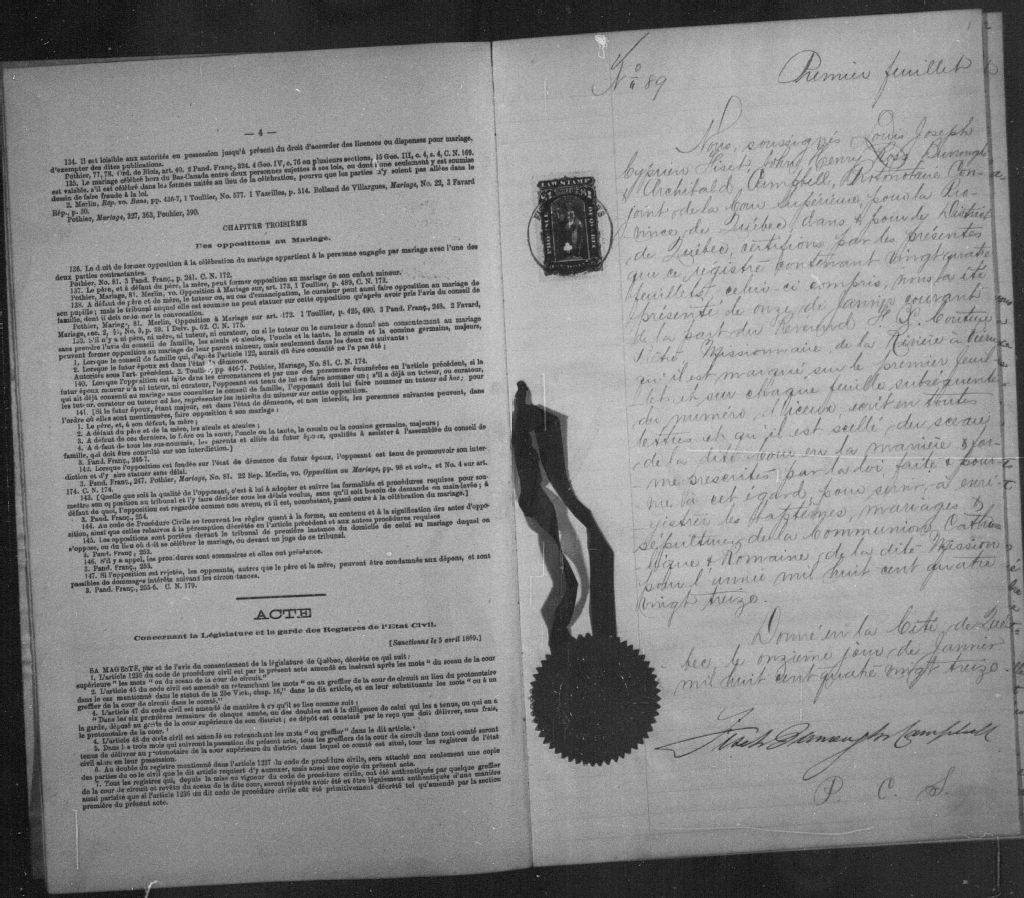 — 4 —
134. Il est loisible aux autorités en possession jusqu'à présent du droit d'accorder des licences ou dispenses pour mariage,
d'exempter des dites publications.
Pothier, 77, 78. Ord. de Blois, art. 40. 2 Pand. Franç., 324. 4 Geo. IV, c. 76 en plusieurs sections, 15 Geo. III, c. 4, s. 4, C. N. 169.
135. Le mariage célébré hors du Bas-Canada entre deux personnes sujettes à ses lois, ou dont l'une seulement y est soumise
est valable, s'il est célébré dans les formes usitées au lieu de la célébration, pourvu que les parties n'y soient pas allées dans le
dessin de faire fraude à la loi.
2. Merlin, Rép. vo. Bans, pp. 436-7, 1 Toullier, No. 577. 1 Vazeilles, p. 514. Rolland de Villargues, Mariage, No. 22, 3 Favard
Rép., p. 30.
Pothier, Mariage, 327, 363, Pouhier, 390.
CHAPITRE TROISIÈME
Des oppositions au Mariage.
136. Le droit de former opposition à la célébration du mariage appartient à la personne engagée par mariage avec l'une des
deux parties contractantes.
Pothier, No. 81. 3 Pand. Franç., p. 241. C. N. 172.
137. Le père, et à défaut du père, la mère, peut former opposition au mariage de son enfant mineur.
Pothier, Mariage, 81. Merlin, vo. Opposition à Mariage sur art. 173, 1 Toullier, p. 489, C. N. 173.
138. A défaut de père et de mère, le tuteur ou, au cas d'émancipation, le curateur peut aussi faire opposition au mariage de
son pupille; mais le tribunal auquel elle est soumise ne peut statuer sur cette opposition qu'après avoir pris l'avis du conseil de
famille, dont il doit ordonner la convocation.
Pothier, Mariage, 81. Merlin, Opposition à Mariage sur art. 172. 1 Toullier, p. 425, 490. 3 Pand. Franç., 248. 2 Favard,
Mariage, sec. 2, §1, No. 3, p. 59. 1 Delv. p. 62. C. N. 175.
139. S'il n'y a ni père, ni mère, ni tuteur, ni curateur, ou si le tuteur ou la curateur a donné son consentement au mariage
sans prendre l'avis du conseil de famille, les aïeuls et aïeules, l'oncle et la tante, le cousin et la cousine germains, majeurs,
peuvent former opposition au mariage de leur parent mineur, mais seulement dans les deux cas suivants:
1. Lorsque le conseil de famille qui, d'après l'article 122, aurait dû être consulté ne l'a pas été;
2. Lorsque le futur époux est dans l'état de démence.
Autorités sous l'art. précédent. 2. Toullier, pp. 446-7. Pothier, Mariage, No. 81. C. N. 174.
140. Lorsque l'opposition est faite dans les circonstances et par une des personnes énumérées en l'article précédent, si le
futur époux mineur n'a ni tuteur, ni curateur, l'opposant est tenu de lui en faire nommer un; s'il a déjà un tuteur, ou curateur,
qui ait déjà consenti au mariage sans consulter le conseil de famille, l'opposant doit lui faire nommer un tuteur ad hoc; pour
les tuteur, curateur ou tuteur ad hoc, représenter les intérêts du mineur sur cette opposition.
141. [Si le futur époux, étant majeur, est dans l'état de démence, et non interdit, les personnes suivantes peuvent, dans
l'ordre où elles sont mentionnées, faire opposition à son mariage:
1. Le père, et, à son défaut, la mère;
2. A défaut du père et de la mère, les aïeuls et aïeules;
3. A défaut de ces derniers, le frère ou la sœur, l'oncle ou la tante, le cousin ou la cousine germains, majeurs;
4. A défaut de tous les sus-nommés, les parents et alliés du futur époux, qualifiés à assister à l'assemblée du conseil de
famille, qui doit être consulté sur son interdiction.]
3. Pand. Franç., 246-7.
142. Lorsque l'opposition est fondée sur l'état de démence du futur époux, l'opposant est tenu de promouvoir son inter-
diction et d'y faire statuer sans délai.
3. Pand. Franç., 247. Pothier, Mariage, No. 81. 22 Rep. Merlin, vo. Opposition au Mariage, pp. 98 et suiv., et No. 4 sur art.
174. C. N. 174.
143. [Quelle que soit la qualité de l'opposant, c'est à lui à adopter et suivre les formalités et procédures requises pour sou-
mettre son opposition au tribunal et l'y faire décider sous les délais voulus, sans qu'il soit besoin de demande en main-levée; à
défaut de quoi, l'opposition est regardée comme non avenu, et il est, nonobstant, passé outre à la célébration du mariage.]
3. Pand. Franç., 254.
144. Au code de Procédure Civile se trouvent les règles quant à la forme, au contenu et à la signification des actes d'oppo-
sition, ainsi que celles relatives à la péremption décrétée en l'article précédent et aux autres procédures requises
145. Les oppositions sont portées devant le tribunal de première instance du domicile de celui au mariage duquel on
s'oppose, ou du lieu où doit se célébrer le mariage, ou devant un juge de ce tribunal.
3. Pand. Franç., 253.
146. S'il y a appel, les procédures sont sommaires et elles ont préséance.
3. Pand. Franç., 253.
147. Si l'opposition est rejetée, les opposants, autres que le père et la mère, peuvent être condamnés aux dépens, et sont
passibles de dommages intérêts suivant les circonstances.
3. Pand. Franç., 255-6. C. N. 179.
ACTE
Concernant la Législature et la garde des Registres de l'Etat Civil.
[Sanctionné le 5 avril 1869.]
SA MAGESTÉ, par et de l'avis du consentement de la législature de Québec, décrète ce qui suit:
1. L'article 1236 du code de procédure civile est par le présent acte amendé en insérant après les mots "du sceau de la cour
supérieure" les mots "ou du sceau de la cour de circuit."
2. L'article 45 du code civil est amendé en retranchant les mots "ou au greffier de la cour de circuit au lieu du protonotaire
dans le cas mentionné dans le statut de la 25e Vict., chap. 16," dans le dit article, et en leur substituants les mots "ou à un
greffier de la cour de circuit dans le comté."
3. L'article 47 du code civil est amendé de manière à ce qu'il se lise comme suit:
"Dans les six premières semaines de chaque année, un des doubles est à la diligence de celui qui les a tenus, ou qui en a
la garde, déposé au greffe de la cour supérieure de son district; ce dépôt est constaté par le reçu que doit délivrer, sans frais,
le protonotaire de la cour."
4. L'article 48 du code civil est amendé en retranchant les mots "ou greffier" dans le dit article.
5. Dans les trois mois qui suivront la passation du présent acte, tous les greffiers de la cour de circuit dans tout comté seront
tenus de délivrer au protonotaire de la cour supérieure du district dans lequel ce comté est situé, tous les registres de l'état
civil alors en leur possession.
6. Au double du registre mentionné dans l'article 1237 du code de procédure civile, sera attaché non seulement une copie
des parties du code civil que le dit article requiert d'y annexer, mais aussi une copie du présent acte.
7. Tous les registres qui, depuis la mise en vigueur du code de procédure civile, ont été authentiqués par quelque greffier
de la cour de circuit et revêtu du sceau de la dite cour, seront réputés avoir été et être légalement authentiqués d'une manière
aussi parfaite que si l'article 1236 du dit code de procédure civile eût été primitivement décrété tel qu'amendé par la section
première du présent acte.
No 89
Premier feuillet
LAW STAMP
Nous, soussignés Louis Joseph
Cyprien Fiset, John Henry Ross Burroughs
& Archibald Campbell, Protonotaire Con-
joint de la Cour Supérieure, pour la Pro-
vince de Québec, dans & pour le District
de Québec, certifions par les présentes
que ce registre contenant vingt quatre
feuillets celui-ci compris, nous a été
présenté de onze de Janvier courant
de la part du Révérend
Ptre Missionnaire de la Rivière à Pierre
qu'il est marqué sur le premier feuil-
let et sur chaque feuille subséquente
du numéro d'iceux écrit en toutes
lettres et qu'il est scellé du sceau
de la dite Cour en la manière & for-
me prescrites par la loi, faite & pour-
vue à cet égard, pour servir à enré-
gistrer les Baptêmes, mariages &
sépultures de la Communion Catho-
lique & Romaine, de la dite Mission
pour l'année mil huit cent quatre
vingt treize.
Donné en la Cité de Qué-
bec, le onzième jour de Janvier
mil huit cent quatre vingt treize
Fiset Burroughs Campbell
P. C. S.